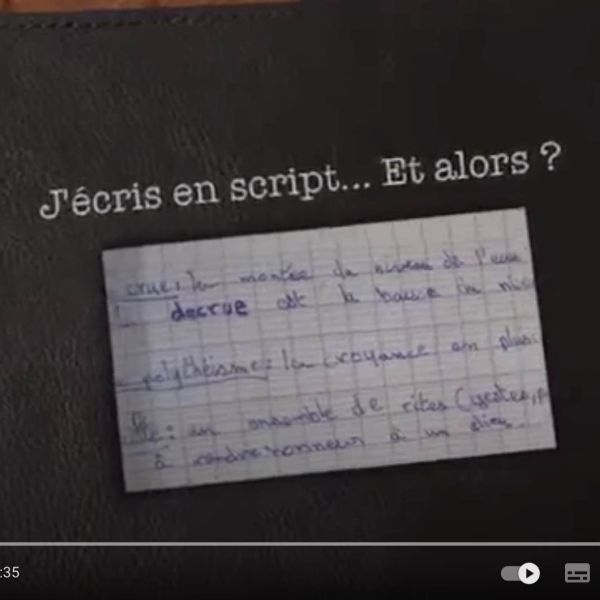 J'écris en script... Et alors ?
crue : la montée du niveau de l'eau
decrue est la baisse du niv
polythéisme : la croyance en plus
: un ensemble de rites (gestes, p
à rendre honneur à un dieu
:35